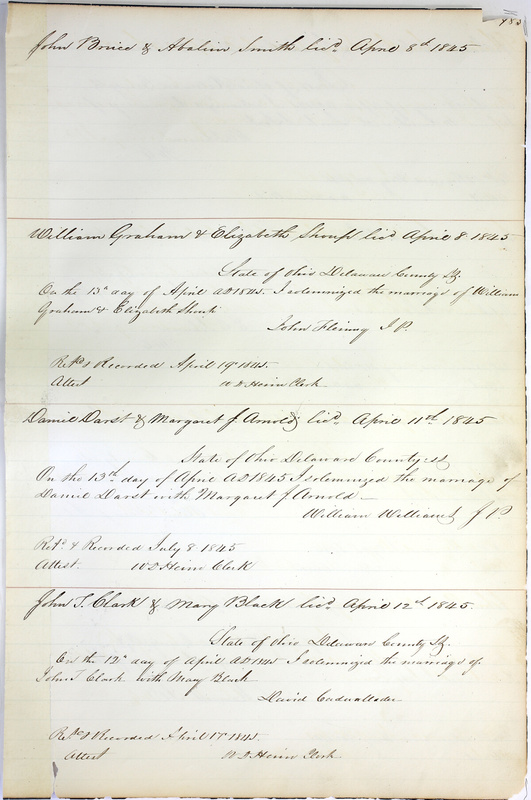 John Brice & Abalin Smith licd April 8th 1845
William Graham & Elizabeth Shoup licd April 8 1845
State of Ohio Delaware County Ss.
On the 13th day of April AD 1845. I solemnized the marriage of William
Graham & Elizabeth
John Fleming J P.
Retd & Recorded April 19th 1845.
Attest W D Heim Clerk
Daniel Darst & Margaret J Arnold, licd. April 11th 1845
State of Ohio Delaware County ss
On the 13th day of April AD 1845 I solemnized the marriage of
Daniel Darst with Margaret J Arnold
William Williams J P.
Retd. & Recorded July 8 1845
Attest. W D Heim Clerk
John T. Clark & Mary Black licd. April 12th 1845.
State of Ohio Delaware County Ss.
On the 12th day of April AD 1845 I solemnized the marriage of
John T Clark with May Black
David Cadwallader
Retd & Recorded April 17th 1845.
Attest W D Heim Clerk